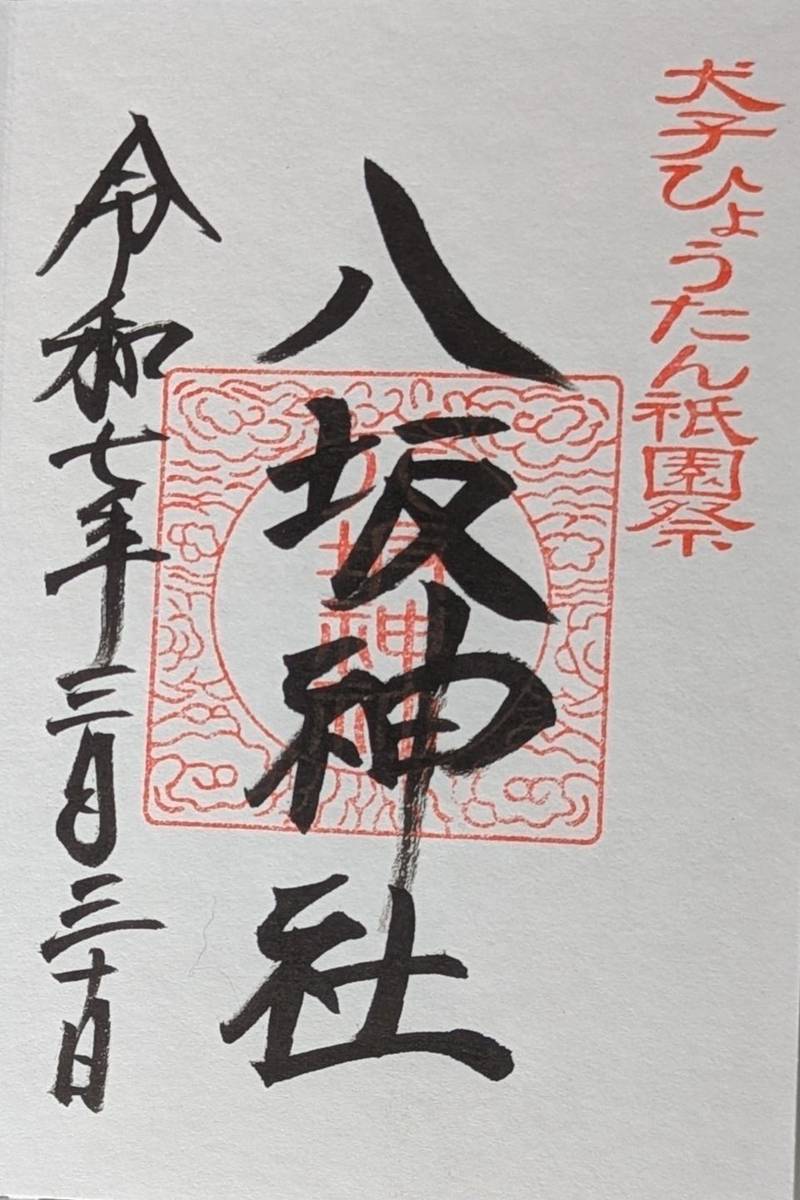 犬子ひょうたん祇園祭
八坂神社
令和七年三月三十日